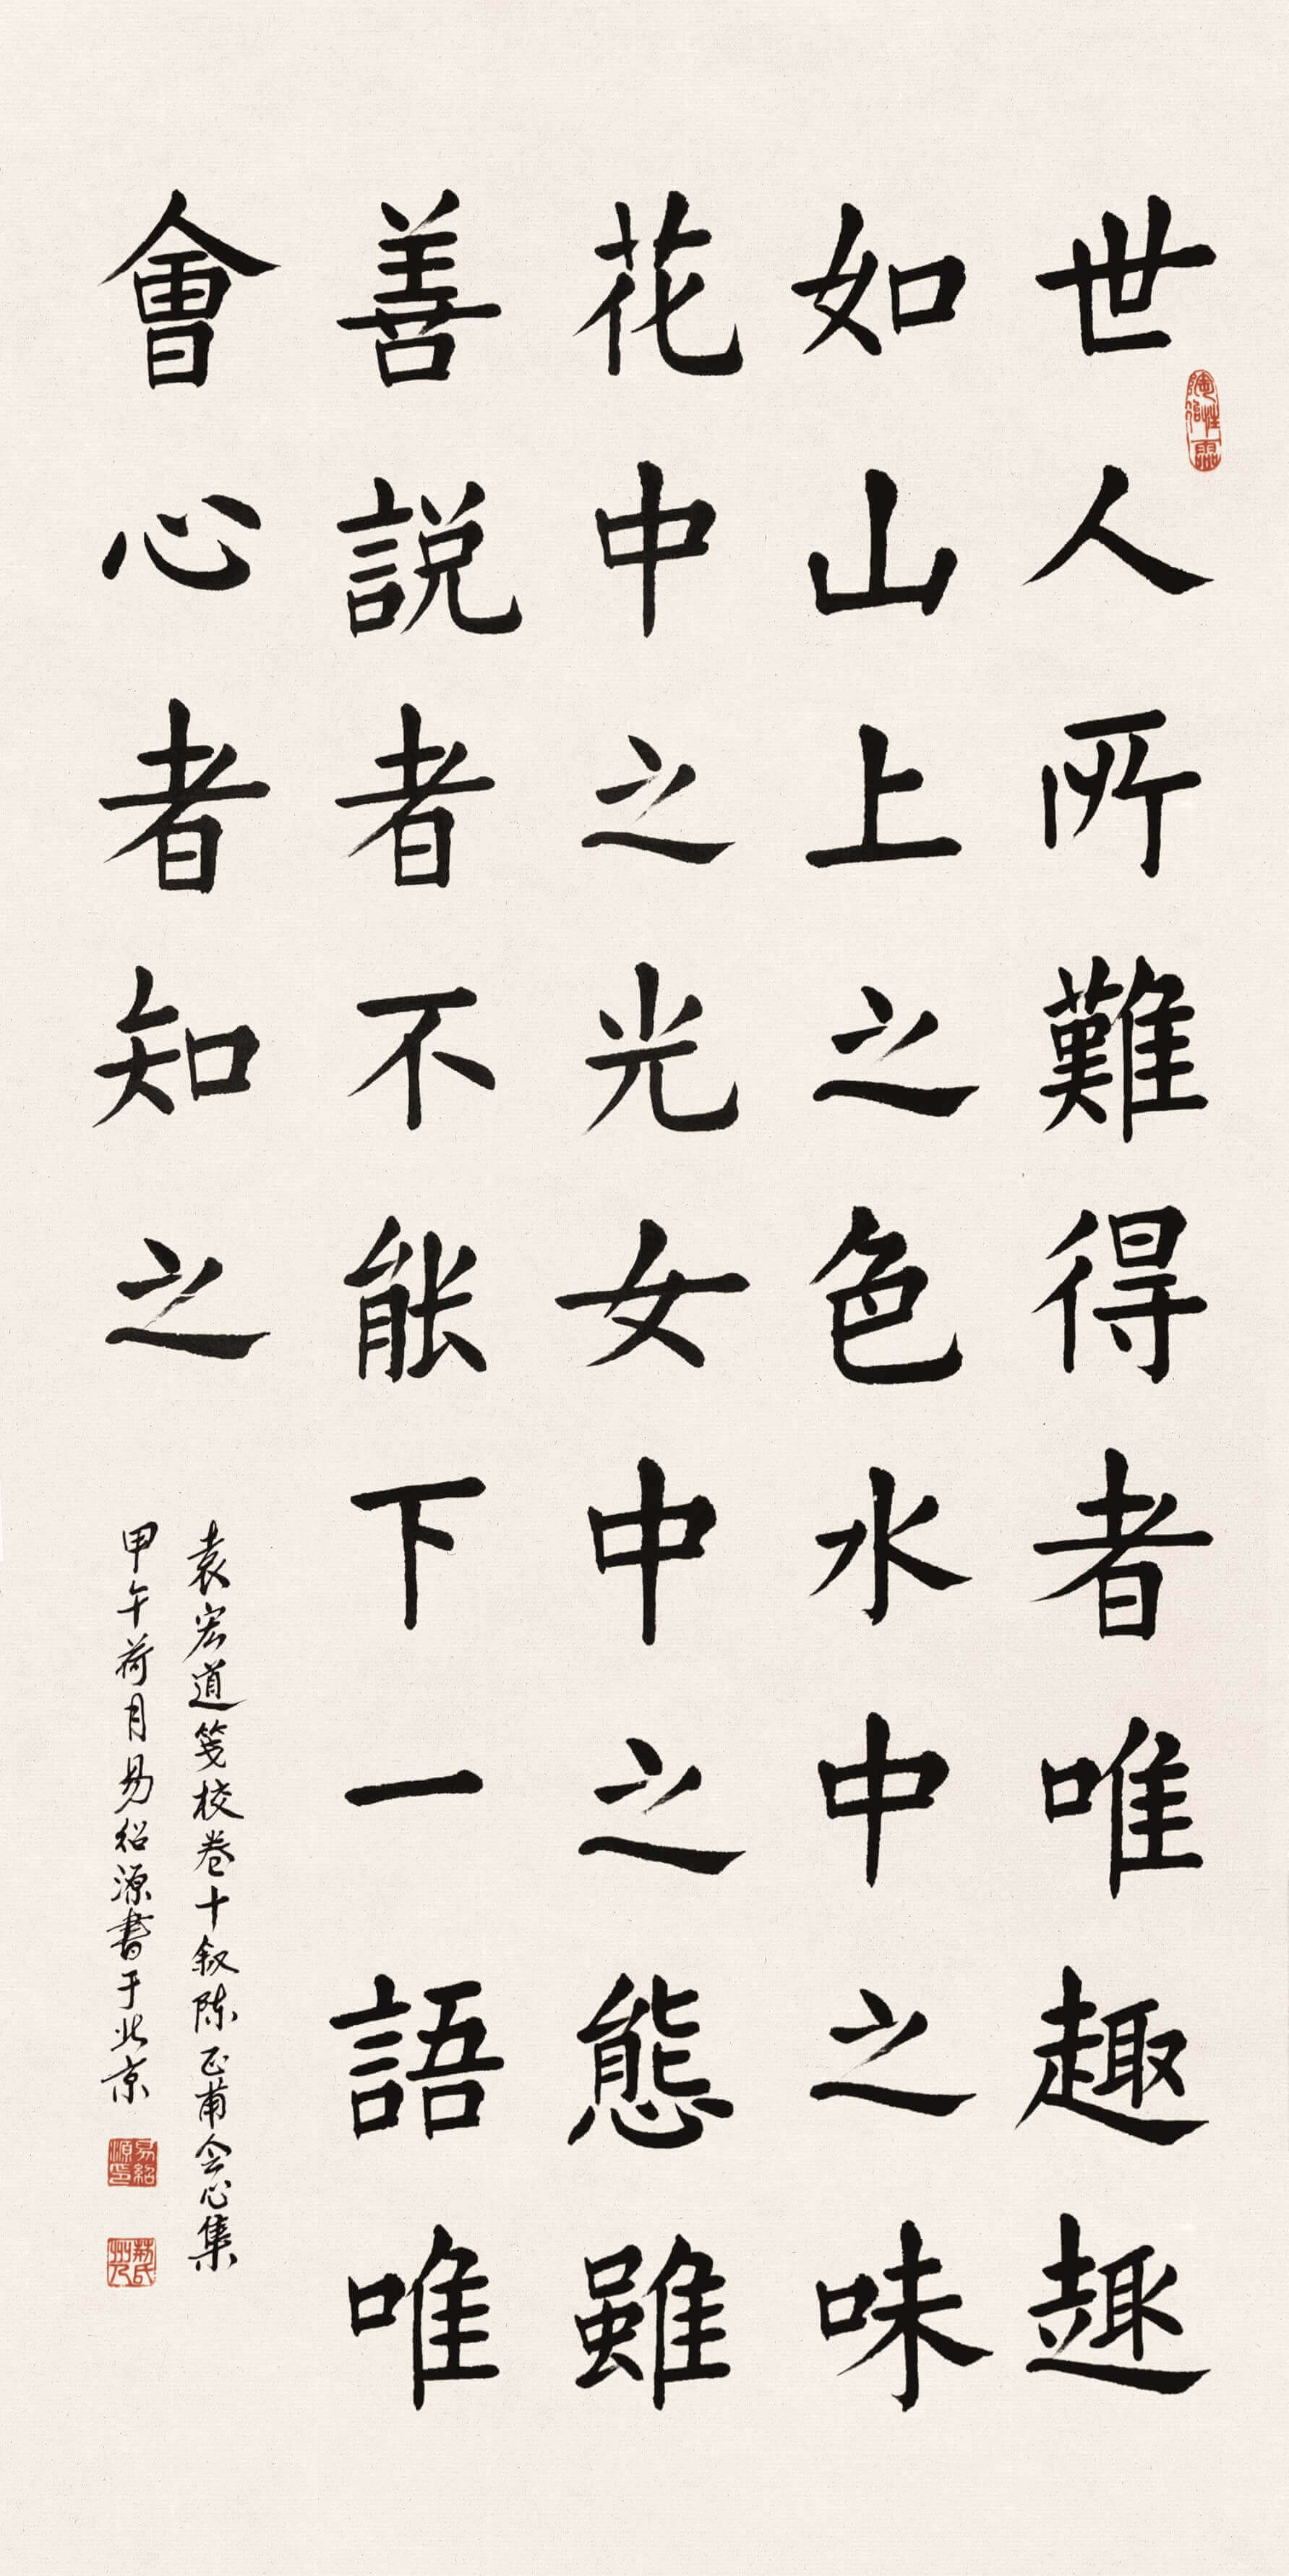 世人所難得者唯趣趣
如山上之色水中之味
花中之光女中之態雖
善説者不能下一語唯
會心者知之
袁宏道笺校卷十叙陈正甫会心集
甲午荷月易绍源書于北京
陶鑄性靈
易紹源印
荊州氏